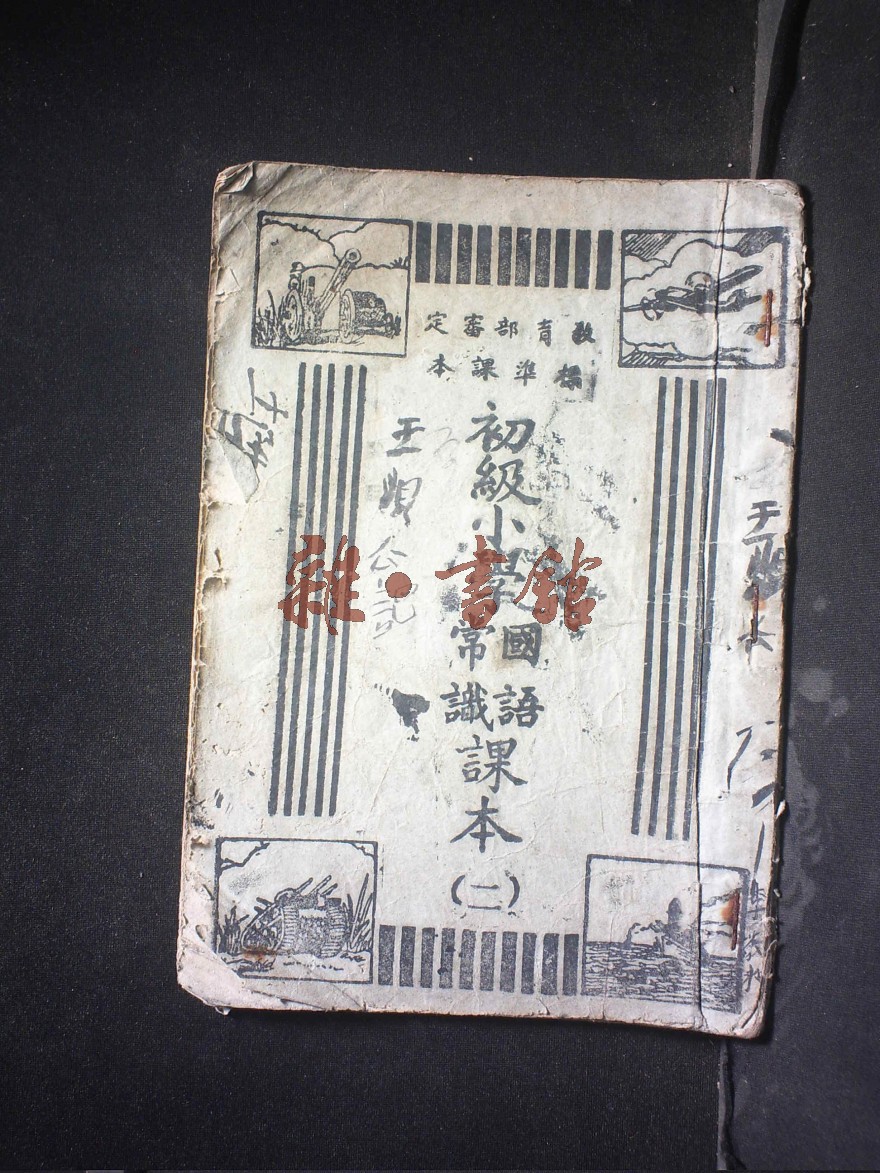 教育部審定
標準課本
初級小學
國語
常識
課本
(二)
雜·書館